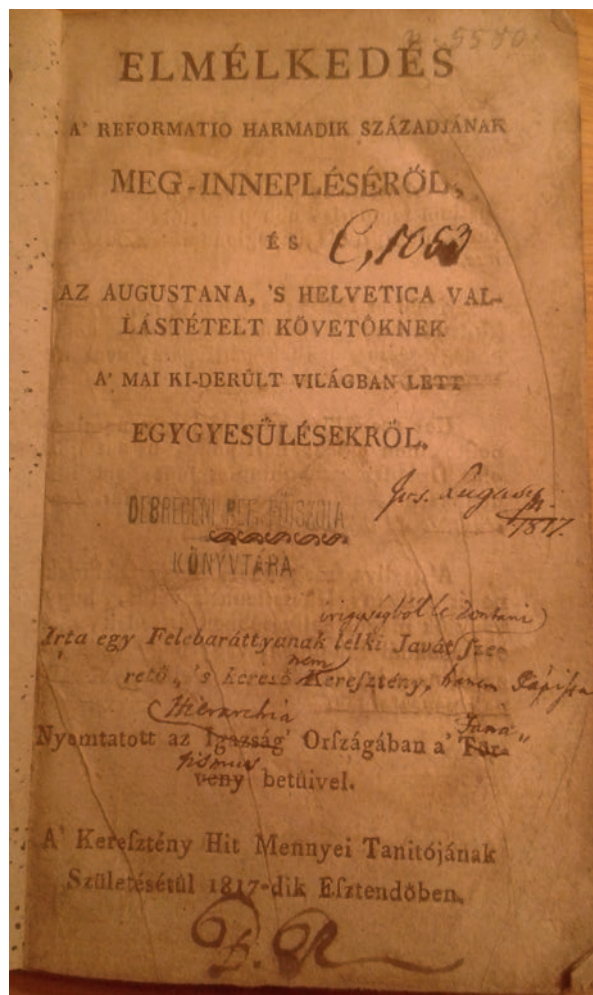 5580
ELMÉLKEDÉS
A' REFORMATIO HARMADIK SZÁZADJÁNAK
MEG-INNEPLÉSÉRŐL,
ÉS
C, 1063
AZ AUGUSTANA, 'S HELVETICA VAL-
LÁSTÉTELT KÖVETŐKNEK
A' MAI KI-DERŰLT VILÁGBAN LETT
EGYGYESÛLÉSEKRŐL.
Jos. Lugasy
1817.
DEBRECENI REF. FŐISKOLA
KÖNYVTÁRA
irigységből le rontani
Irta egy Felebaráttyának lelki Javát ſze-
nem
rető, 's kereső Kereſztény, hanem Pápista
Hierarchia
Nyomtatott az Igazság' Orſzágában a' Tör-
Fana"
tismus
vény betűivel.
A' Kereſztény Hit Mennyei Tanítójának
Születésétűl 1817-dik Eſztendőben.